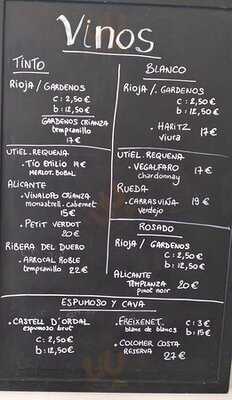 Vinos
TINTO
RIOJA / GARDENOS
c : 2,50€
b : 12,50€
GARDENOS CRIANZA
tempranillo
17€
UTIEL. REQUENA.
. TÍO EMILIO 19€
MERLOT. BOBAL
ALICANTE
. VINALOPO CRIANZA
monastrell. cabernet
15€
. PETIT VERDOT
20€
RIBERA DEL DUERO
. ARROCAL ROBLE
tempranillo 22€
BLANCO
RIOJA /. GARDENOS
c : 2,50€
b : 12,50€
. HARITZ 17€
viura
UTIEL. REQUENA
. VEGALFARO 17€
chardonnay
RUEDA
. CARRASVIÑA 19€
verdejo
ROSADO
RIOJA / GARDENOS
c : 2,50€
b : 12,50€
ALICANTE
TEMPLANZA 20€
pinot noir
ESPUMOSO Y CAVA
. CASTELL D'ORDAL
espumoso brut
c : 2,50€
b : 12,50€
. FREIXENET. c : 3€
blanc de blancs b : 15€
. COLOMER COSTA
RESERVA 27€